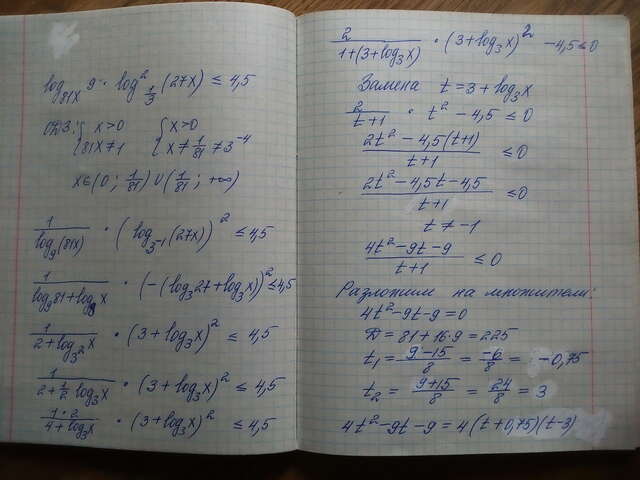 log₈₁ₓ 9 · log²_{1/3} (27x) ≤ 4,5
ОДЗ: { x>0 { x>0
{ 81x ≠ 1 { x ≠ 1/81 ≠ 3⁻⁴
x∈(0; 1/81) ∪ (1/81; +∞)
1/log₉(81x) · (log₃₋₁(27x))² ≤ 4,5
1/(log₉81 + log₉x) · (-(log₃27 + log₃x))² ≤ 4,5
1/(2 + log₃²x) · (3 + log₃x)² ≤ 4,5
1/(2 + 1/2 log₃x) · (3 + log₃x)² ≤ 4,5
1·2/(4 + log₃x) · (3 + log₃x)² ≤ 4,5
2/(1+(3+log₃x)) · (3+log₃x)² - 4,5 ≤ 0
Замена t = 3 + log₃x
2/(t+1) · t² - 4,5 ≤ 0
(2t² - 4,5(t+1))/(t+1) ≤ 0
(2t² - 4,5t - 4,5)/(t+1) ≤ 0
t ≠ -1
(4t² - 9t - 9)/(t+1) ≤ 0
Разложим на множители:
4t² - 9t - 9 = 0
D = 81 + 16·9 = 225
t₁ = (9-15)/8 = -6/8 = -0,75
t₂ = (9+15)/8 = 24/8 = 3
4t² - 9t - 9 = 4(t+0,75)(t-3)